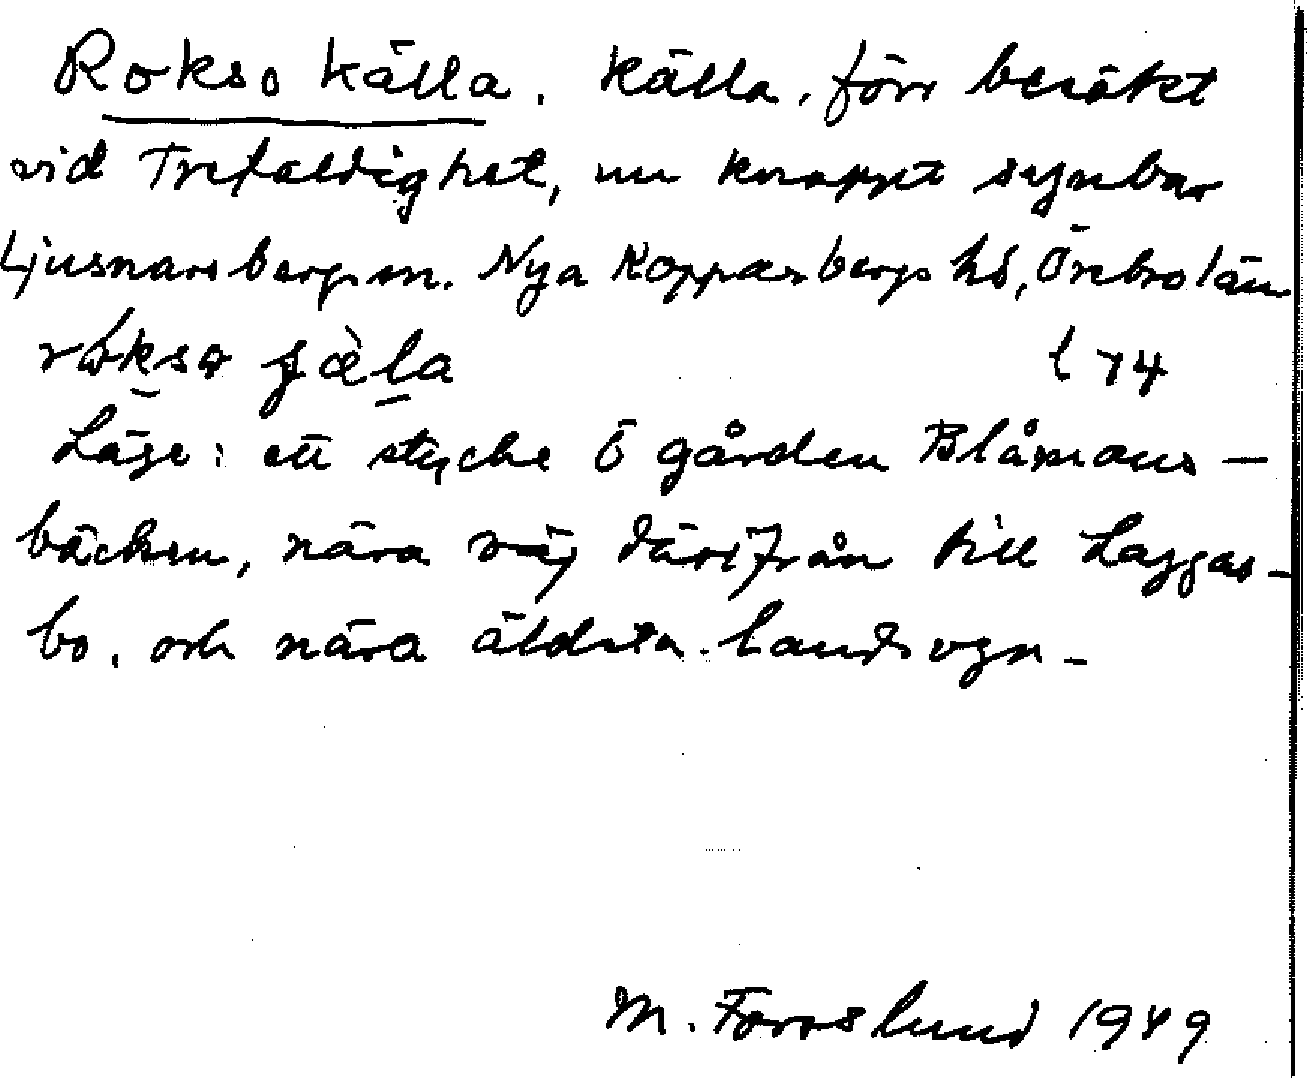 Rokso källa. Källa, förr besökt
vid Trefaldighet, nu knappt synbar
Ljusnarsbergs sn. Nya Kopparbergs hd, Örebro län
l 74
Läge: ett stycke Ö gården Blåmans-
bäcken, nära väg därifrån till Laggas-
bo, och nära äldsta landsvgn-
M. Forslund 1949